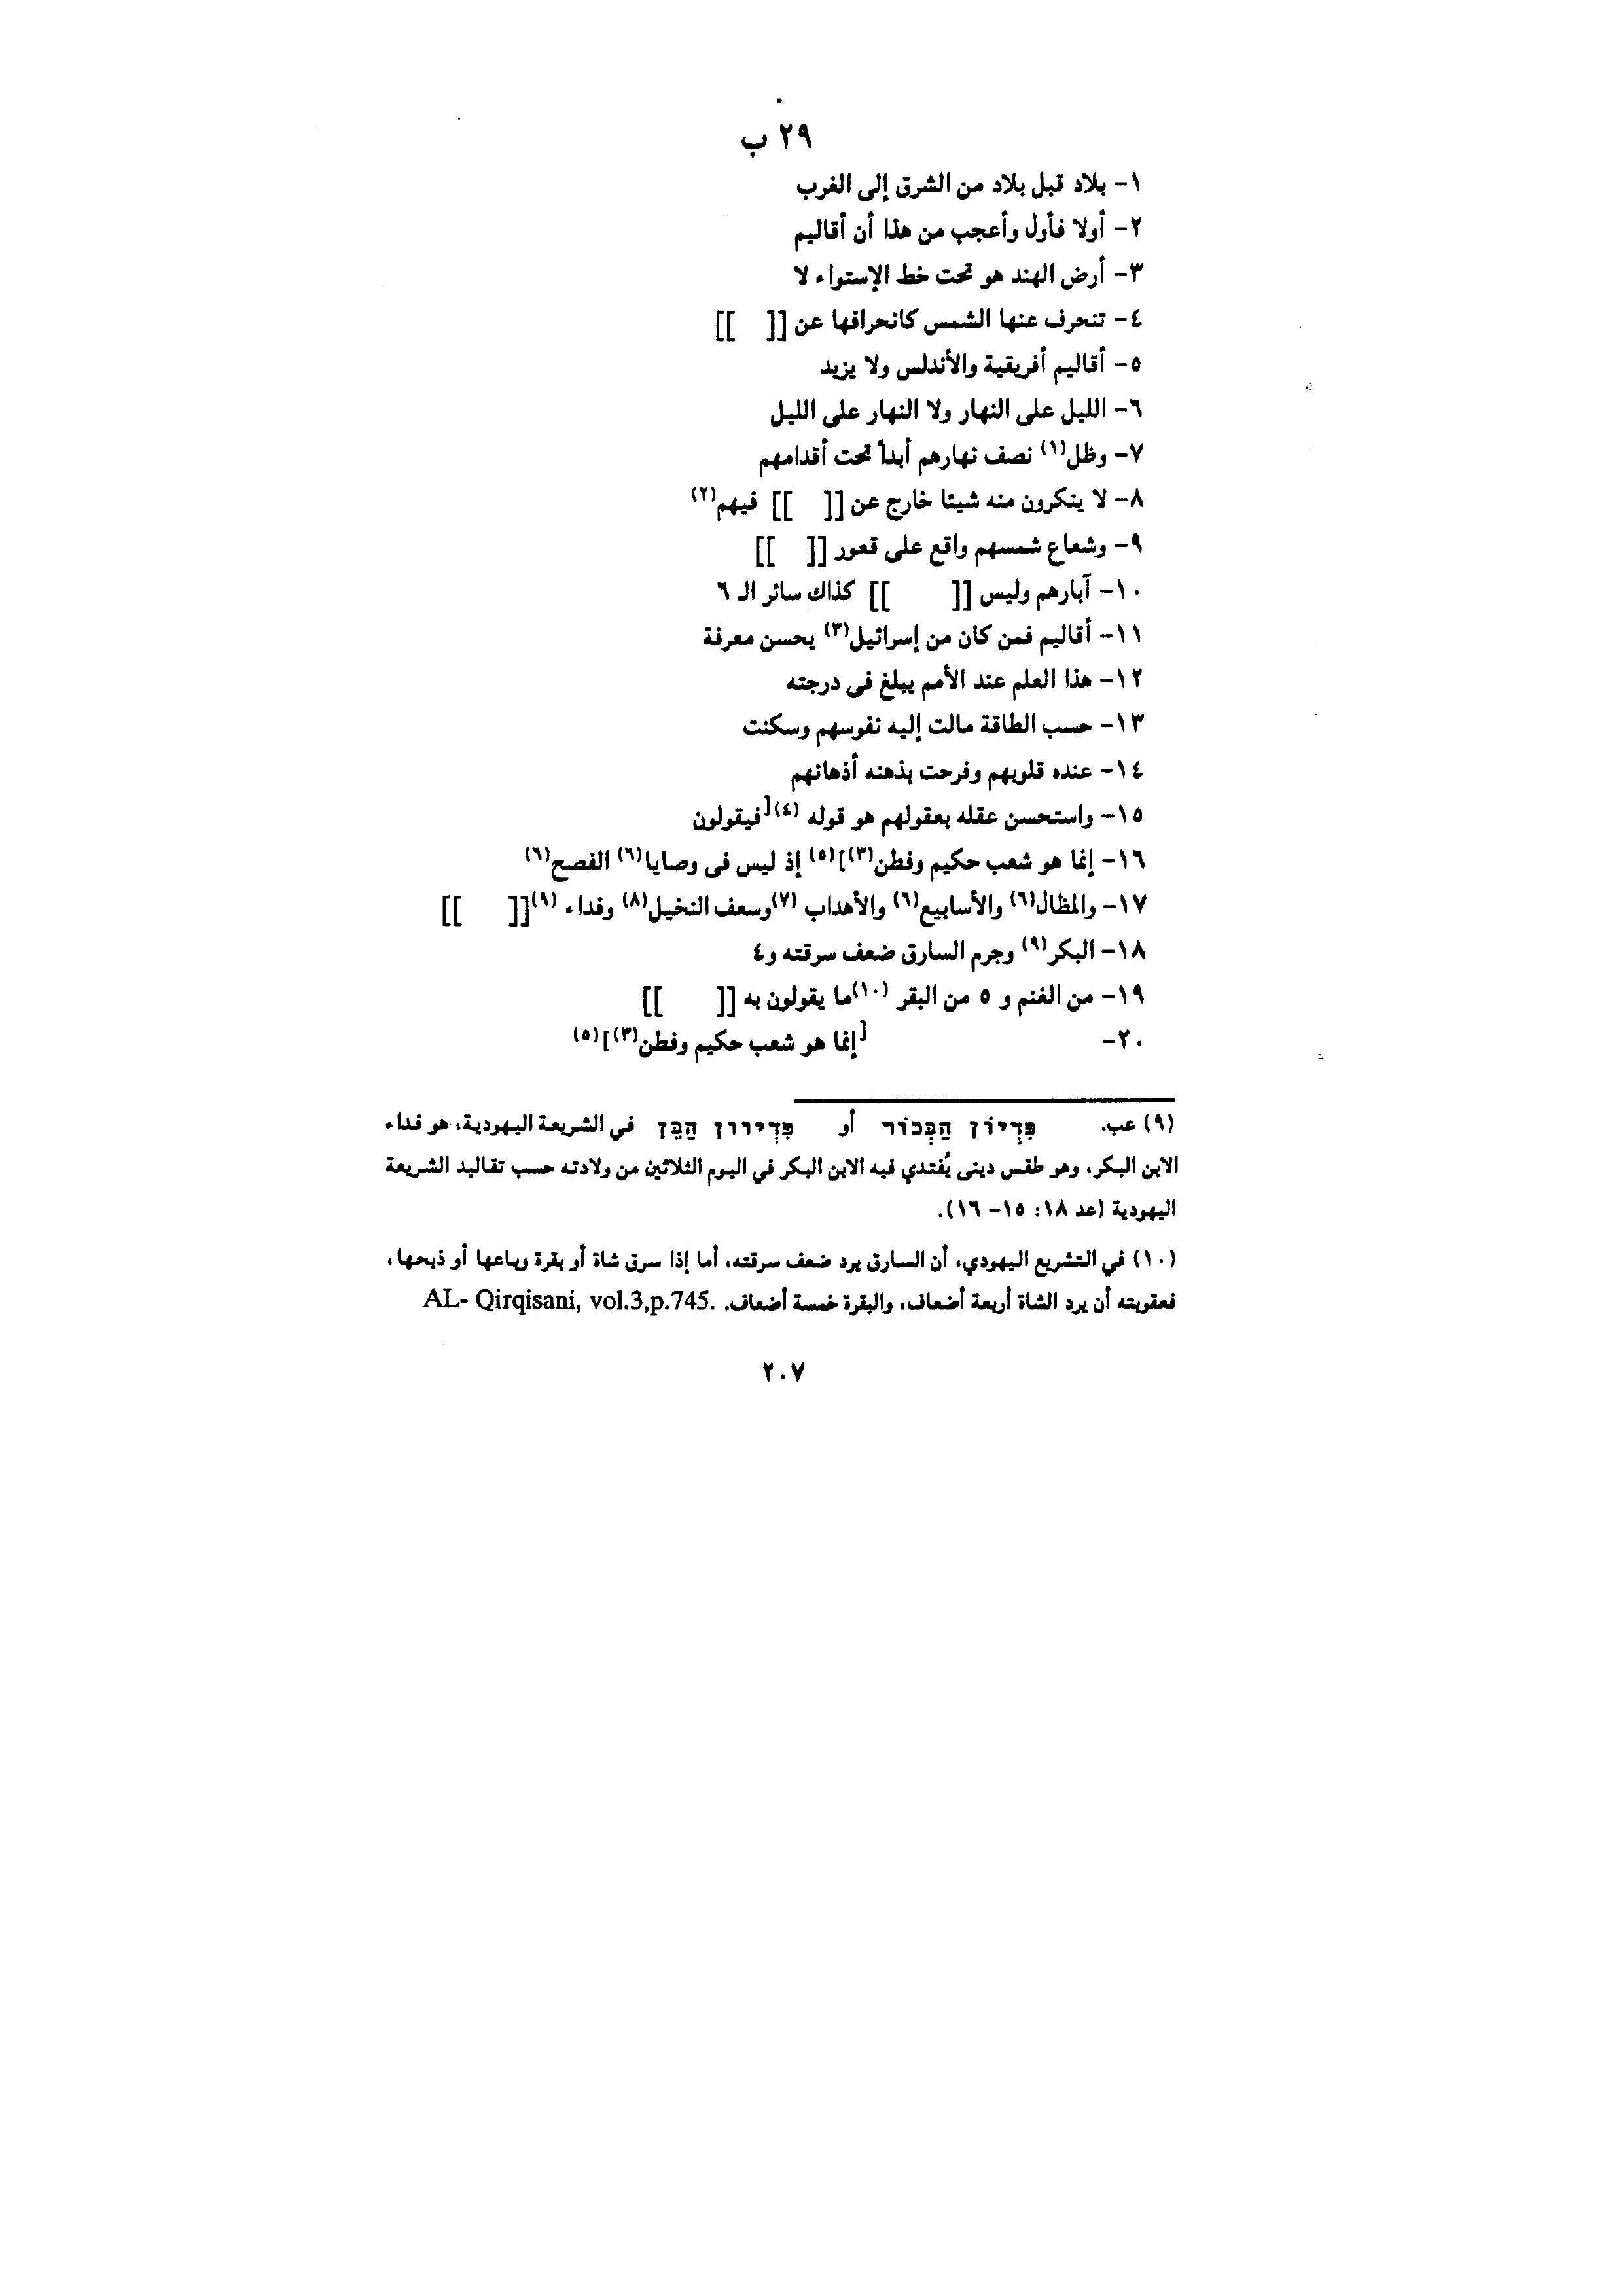 ٢٩ ب
١- بلاد قبل بلاد من الشرق إلى الغرب
٢- أولا فأول وأعجب من هذا أن أقاليم
٣- أرض الهند هو تحت خط الإستواء لا
٤- تنحرف عنها الشمس كانحرافها عن [[ ]]
٥- أقاليم أفريقية والأندلس ولا يزيد
٦- الليل على النهار ولا النهار على الليل
٧- وظل(١) نصف نهارهم أبداً تحت أقدامهم
٨- لا ينكرون منه شيئا خارج عن [[ ]] فيهم(٢)
٩- وشعاع شمسهم واقع على قعور [[ ]]
١٠- آبارهم وليس [[ ]] كذاك سائر الـ ٦
١١- أقاليم فمن كان من إسرائيل(٣) يحسن معرفة
١٢- هذا العلم عند الأمم يبلغ فى درجته
١٣- حسب الطاقة مالت إليه نفوسهم وسكنت
١٤- عنده قلوبهم وفرحت بذهنه أذهانهم
١٥- واستحسن عقله بعقولهم هو قوله (٤)[فيقولون
١٦- إنما هو شعب حكيم وفطن(٣)](٥) إذ ليس فى وصايا(٦) الفصح(٦)
١٧- والمظال(٦) والأسابيع(٦) والأهداب (٧)وسعف النخيل(٨) وفداء (٩)[[ ]]
١٨- البكر(٩) وجرم السارق ضعف سرقته و٤
١٩- من الغنم و ٥ من البقر (١٠)ما يقولون به [[ ]]
٢٠- [إنما هو شعب حكيم وفطن(٣)](٥)
(٩) عب. פִּדְיוֹן הַבְּכוֹר أو פִּדְיוון הַבֵּן في الشريعة اليهودية، هو فداء
الابن البكر، وهو طقس دينى يُفتدي فيه الابن البكر في اليوم الثلاثين من ولادته حسب تقاليد الشريعة
اليهودية (عد ١٨: ١٥- ١٦).
(١٠) في التشريع اليهودي، أن السارق يرد ضعف سرقته، أما إذا سرق شاة أو بقرة وباعها أو ذبحها،
فعقوبته أن يرد الشاة أربعة أضعاف، والبقرة خمسة أضعاف. AL- Qirqisani, vol.3,p.745.
٢٠٧